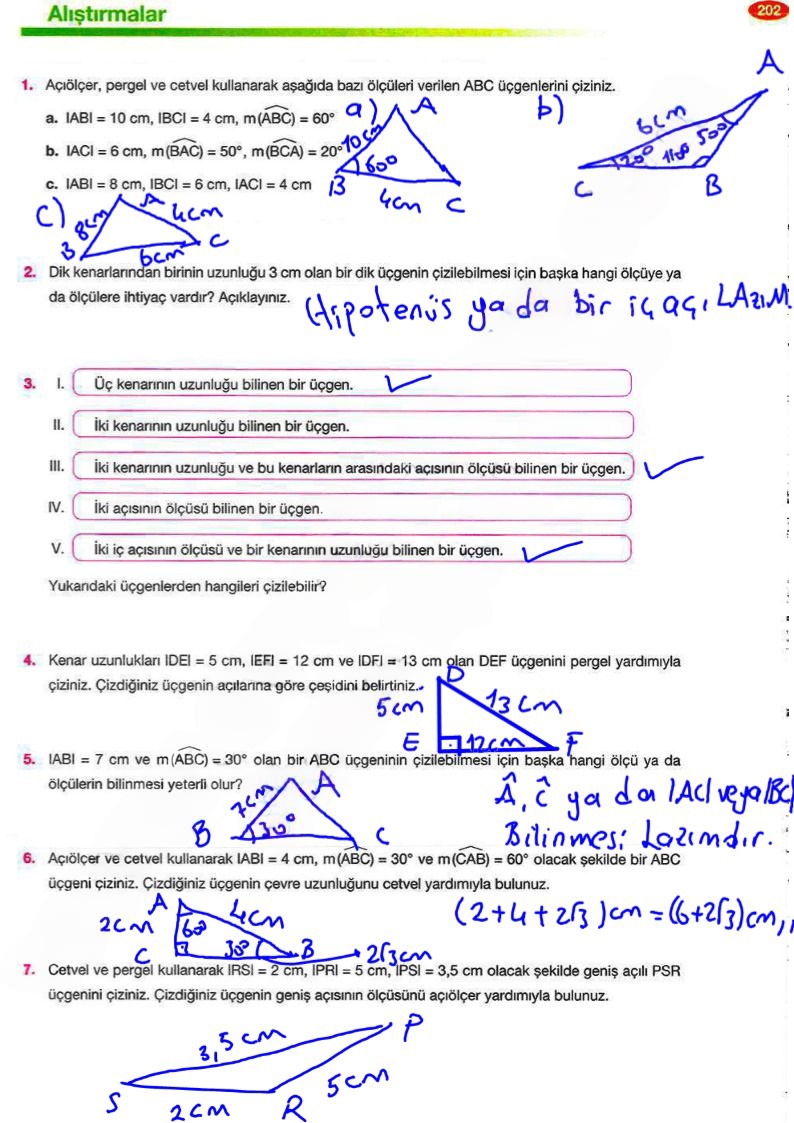 Alıştırmalar
202
1. Açıölçer, pergel ve cetvel kullanarak aşağıda bazı ölçüleri verilen ABC üçgenlerini çiziniz.
a. IABI = 10 cm, IBCI = 4 cm, m(ABC) = 60°
b. IACI = 6 cm, m(BAC) = 50°, m(BCA) = 20°
c. IABI = 8 cm, IBCI = 6 cm, IACI = 4 cm
a) A
10cm
60°
B
4cm C
b)
A
6cm
20° 110° 50°
C B
c) A
8cm 4cm
B 6cm C
2. Dik kenarlarından birinin uzunluğu 3 cm olan bir dik üçgenin çizilebilmesi için başka hangi ölçüye ya
da ölçülere ihtiyaç vardır? Açıklayınız.
Hipotenüs ya da bir iç açı LAzıM
3. I. Üç kenarının uzunluğu bilinen bir üçgen. ✓
II. İki kenarının uzunluğu bilinen bir üçgen.
III. İki kenarının uzunluğu ve bu kenarların arasındaki açısının ölçüsü bilinen bir üçgen. ✓
IV. İki açısının ölçüsü bilinen bir üçgen.
V. İki iç açısının ölçüsü ve bir kenarının uzunluğu bilinen bir üçgen. ✓
Yukarıdaki üçgenlerden hangileri çizilebilir?
4. Kenar uzunlukları IDEI = 5 cm, IEFI = 12 cm ve IDFI = 13 cm olan DEF üçgenini pergel yardımıyla
çiziniz. Çizdiğiniz üçgenin açılarına göre çeşidini belirtiniz.
D
5cm 13cm
E 12cm F
5. IABI = 7 cm ve m(ABC) = 30° olan bir ABC üçgeninin çizilebilmesi için başka hangi ölçü ya da
ölçülerin bilinmesi yeterli olur?
A
7cm
B 30° C
Â, Ĉ ya da |AC| veya |BC|
Bilinmesi Lazımdır.
6. Açıölçer ve cetvel kullanarak IABI = 4 cm, m(ABC) = 30° ve m(CAB) = 60° olacak şekilde bir ABC
üçgeni çiziniz. Çizdiğiniz üçgenin çevre uzunluğunu cetvel yardımıyla bulunuz.
A
2cm 60° 4cm
C 30° B 2√3cm
(2+4+2√3)cm = (6+2√3)cm,,
7. Cetvel ve pergel kullanarak IRSI = 2 cm, IPRI = 5 cm, IPSI = 3,5 cm olacak şekilde geniş açılı PSR
üçgenini çiziniz. Çizdiğiniz üçgenin geniş açısının ölçüsünü açıölçer yardımıyla bulunuz.
P
3,5 cm
5cm
S 2cm R